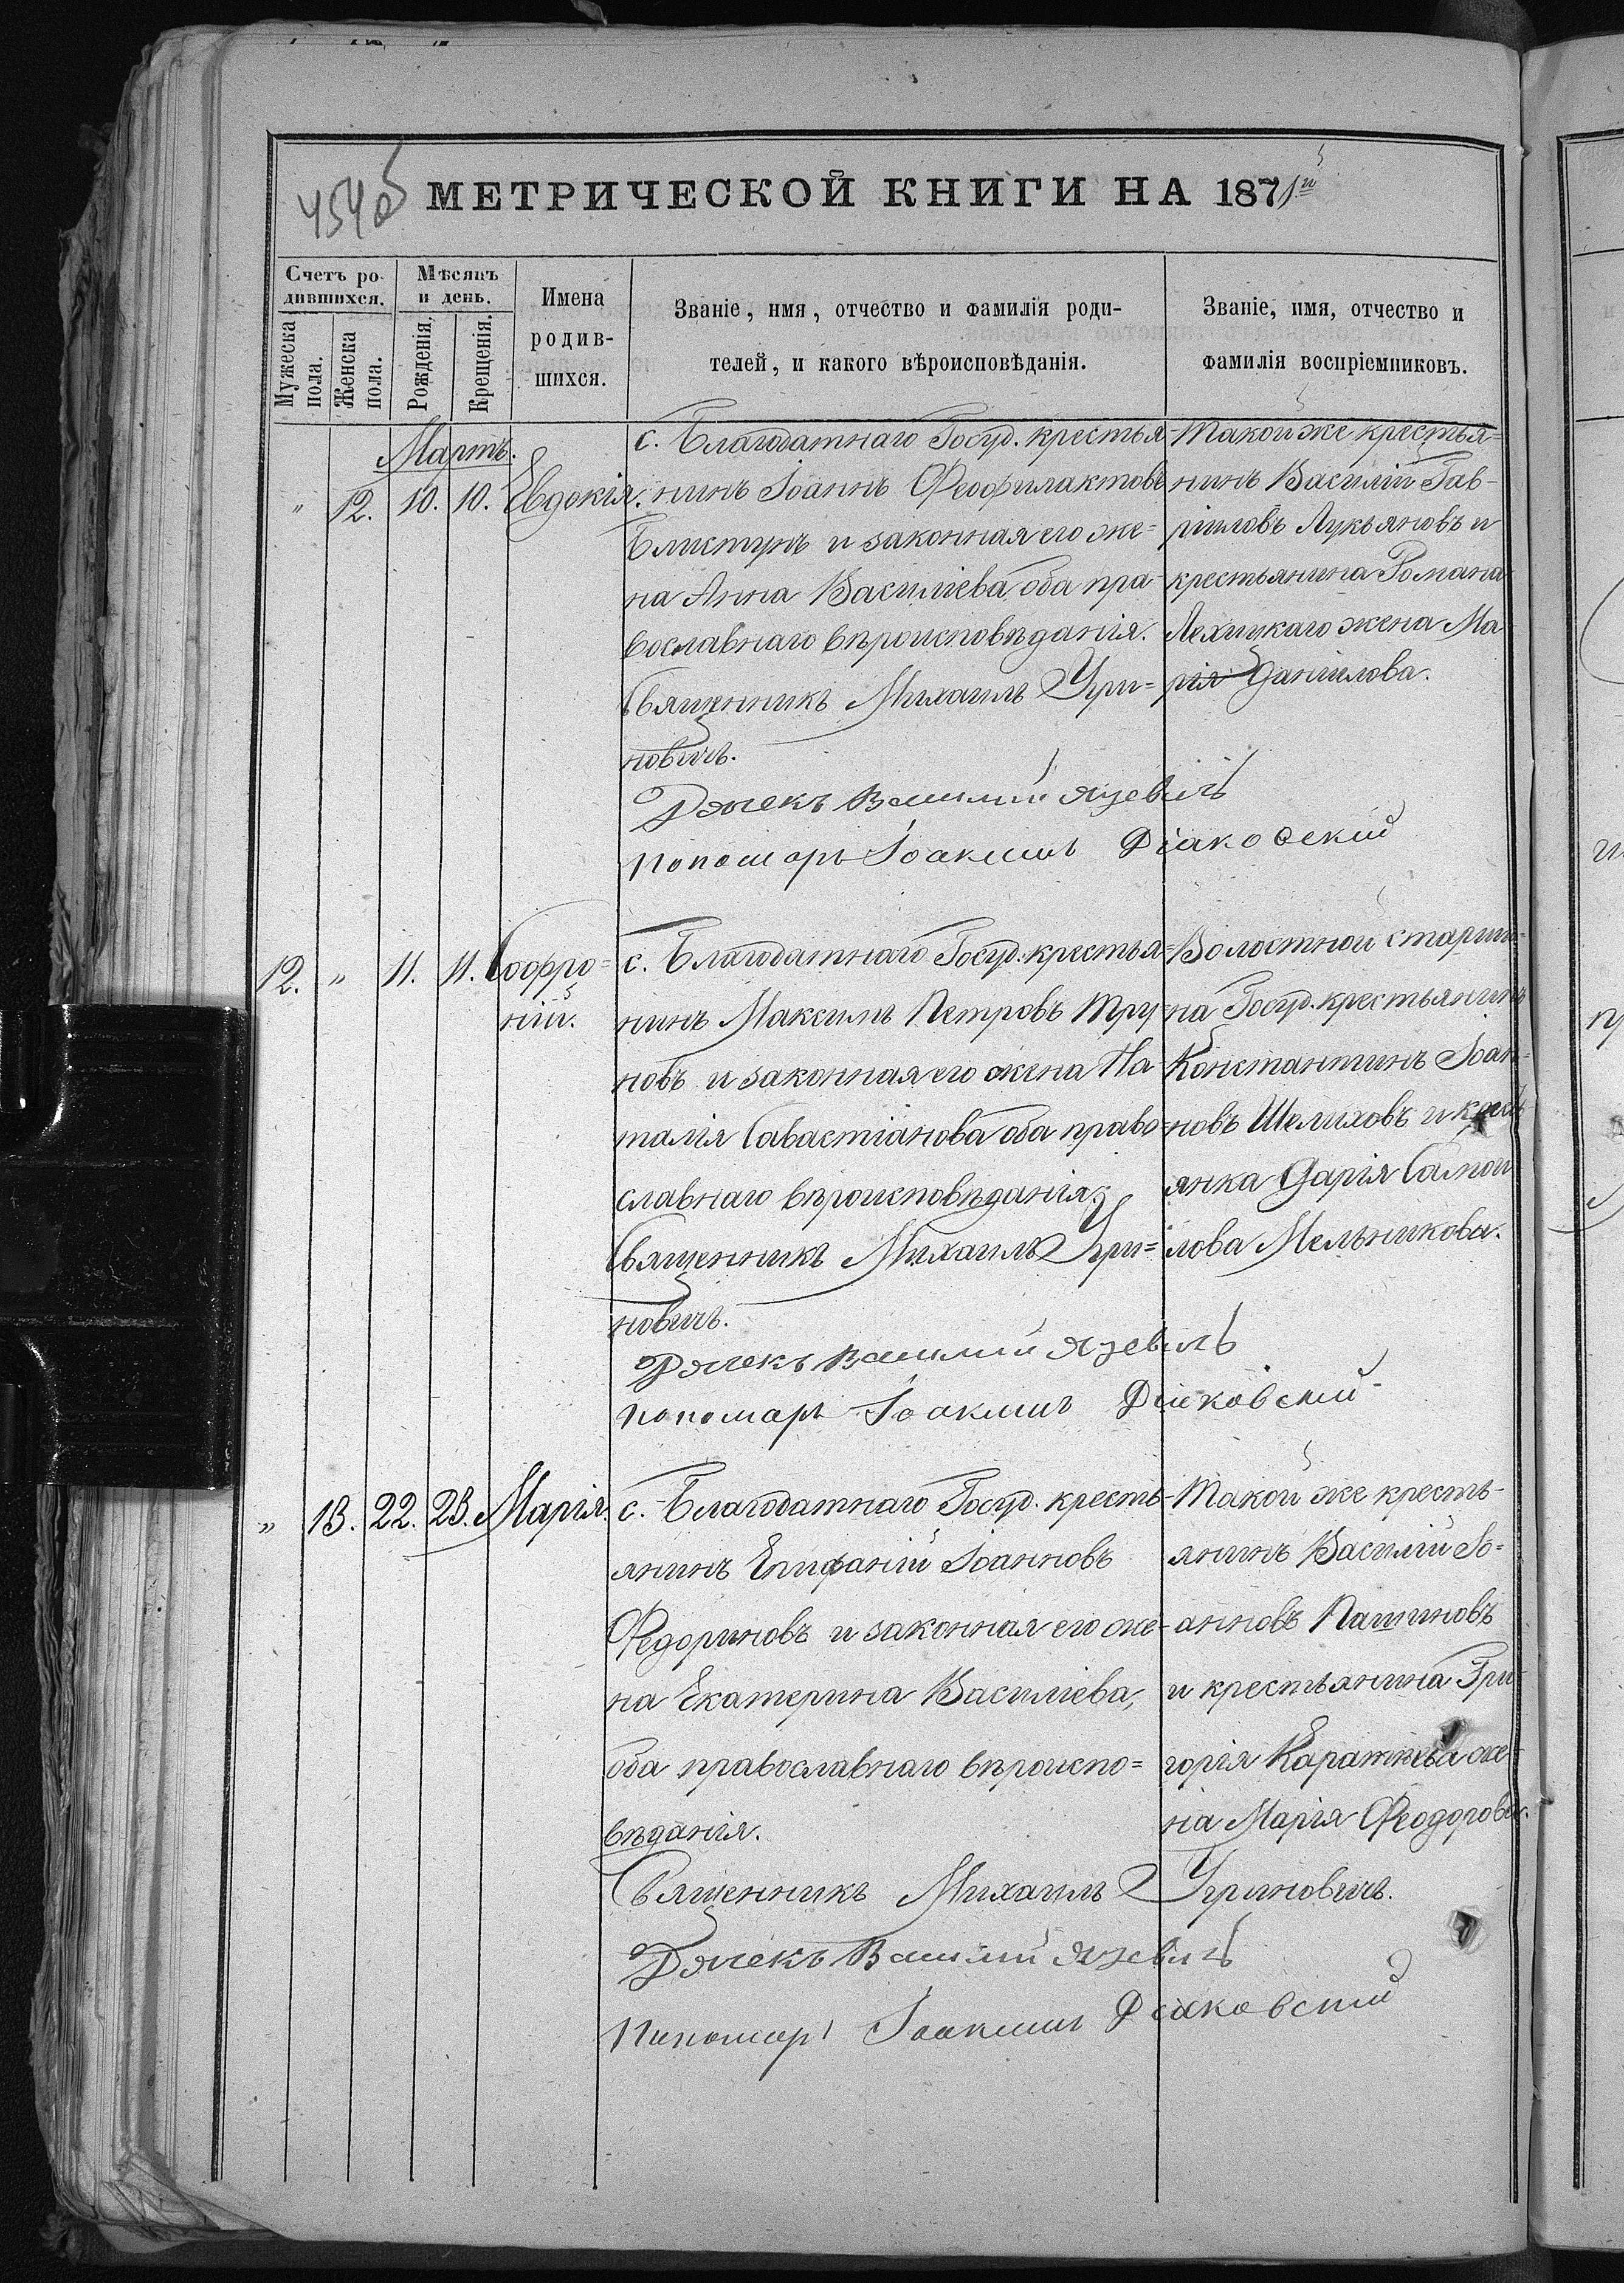 454об
МЕТРИЧЕСКОЙ КНИГИ НА 1871й
Счетъ ро-
дившихся.
Мужеска
пола.
Женска
пола.
Мѣсяцъ
и день.
Рожденія.
Крещенія.
Имена
родив-
шихся.
Званіе, имя, отчество и фамилія роди-
телей, и какого вѣроисповѣданія.
Званіе, имя, отчество и
фамилія воспріемниковъ.
Мартъ.
" 12. 10. 10. Евдокія.
с. Благодатнаго Госуд. крестья-
нинъ Іоаннъ Феофилактовъ
Блистунъ и законная его же-
на Анна Василіева оба пра-
вославнаго вѣроисповѣданія.
Священникъ Михаилъ Угри-
новичъ.
Дячекъ Василий Язевичъ
Пономарь Іоакимъ Діаковский
Такой же крестья-
нинъ Василій Гав-
ріиловъ Лукьяновъ и
крестьянина Романа
Лехицкаго жена Ма-
рія Даніилова.
12. " 11. 11. Софро-
ній.
с. Благодатнаго Госуд. крестья-
нинъ Максимъ Петровъ Тру-
новъ и законная его жена На-
талія Савастіанова оба право-
славнаго вѣроисповѣданія;
Священникъ Михаилъ Угри-
новичъ.
Дячекъ Василий Язевичъ
Пономарь Іоакимъ Діаковский
Волостной старши-
на Госуд. крестьянинъ
Константинъ Іоан-
новъ Шелиховъ и крест
янка Дарія Самои
лова Мельникова.
" 13. 22. 23. Марія.
с. Благодатнаго Госуд. кресть-
янинъ Епифаній Іоанновъ
Федориновъ и законная его же-
на Екатерина Василіева,
оба православнаго вѣроиспо-
вѣданія.
Священникъ Михаилъ Угриновичъ.
Дячекъ Василий Язевичъ
Пономарь Іоакимъ Діаковский
Такой же кресть-
янинъ Василій Іо-
анновъ Пашиновъ
и крестьянина Гри-
горія же-
на Марія Феодорова.